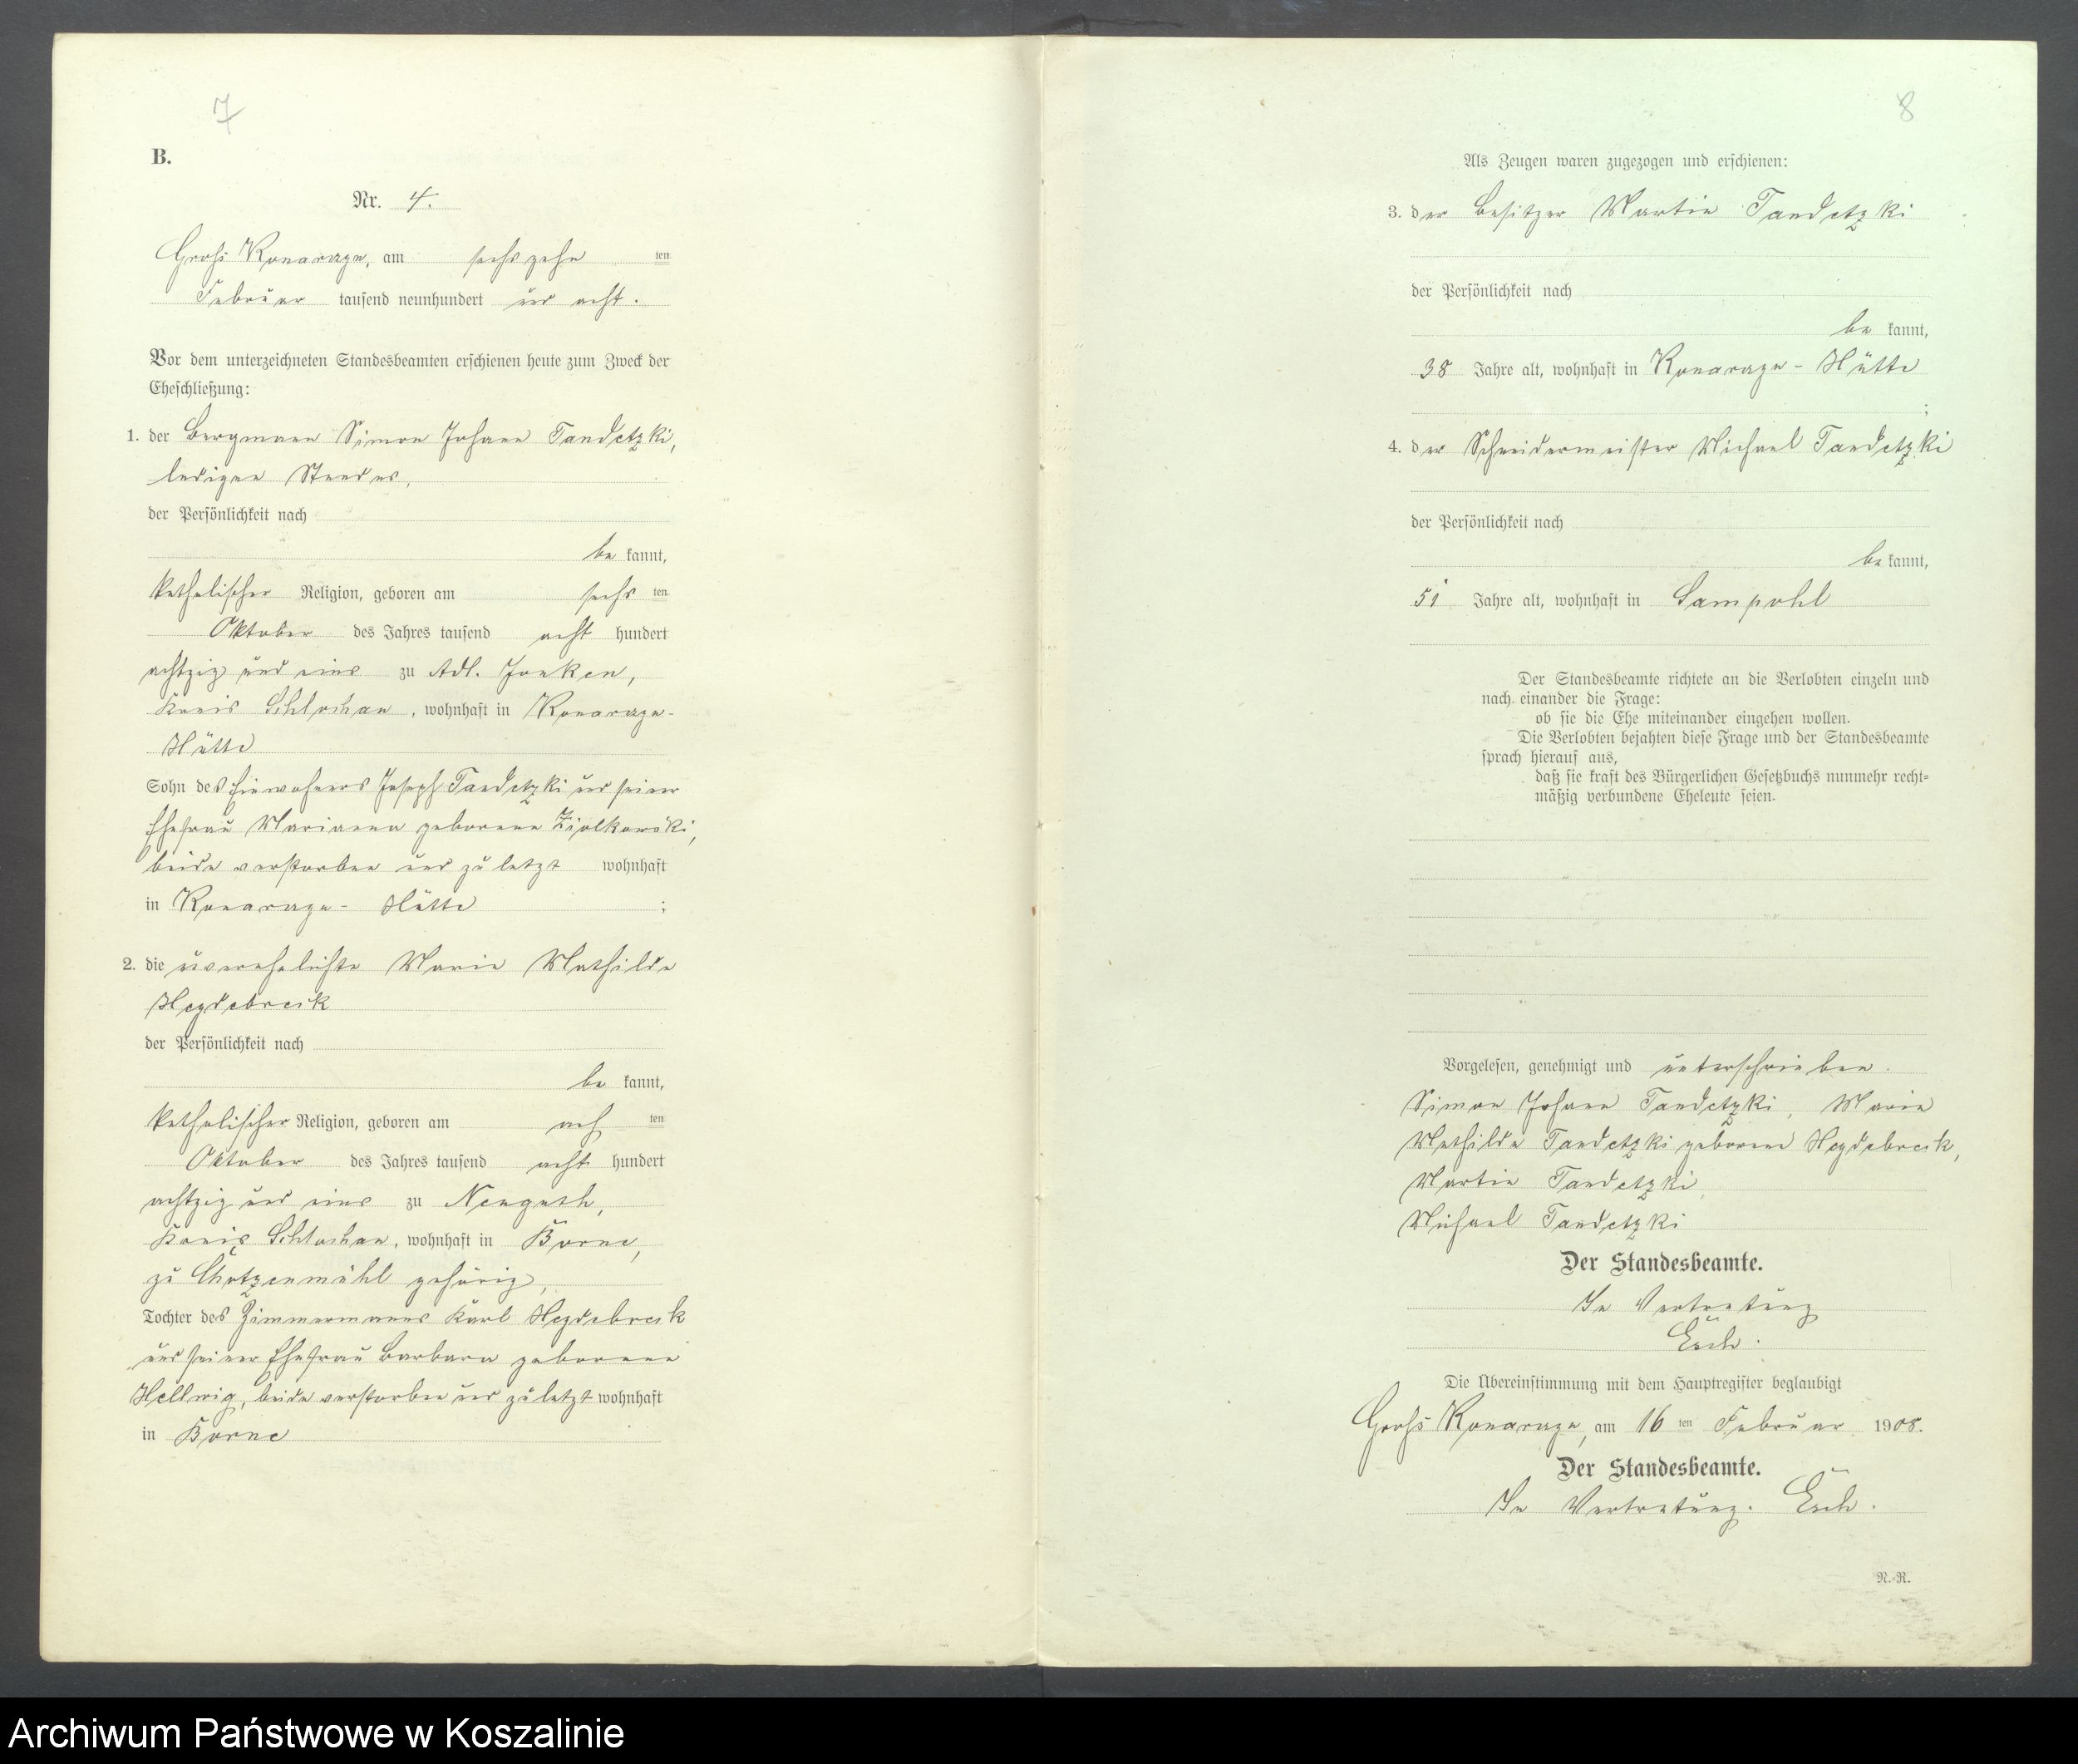 7
B.
Nr. 4.
Groß Konarzyn, am sechszehn ten
Februar tausend neunhundert und acht.
Vor dem unterzeichneten Standesbeamten erschienen heute zum Zweck der
Eheschließung:
1. der Bergmann Simon Johann Tandetzki,
ledigen Standes,
der Persönlichkeit nach
be kannt,
katholischer Religion, geboren am sechs ten
Oktober des Jahres tausend acht hundert
achtzig und eins zu Adl. Jonken,
Kreis Schlochau, wohnhaft in Konarzyn-
Hütte
Sohn des Einwohners Joseph Tandetzki und seiner
Ehefrau Marianna geborene Ziolkowski,
beide verstorben und zuletzt wohnhaft
in Konarzyn- Hütte ;
2. die unverehelichte Marie Mathilde
Heydebreck
der Persönlichkeit nach
be kannt,
katholischer Religion, geboren am ach ten
Oktober des Jahres tausend acht hundert
achtzig und eins zu Neuguth,
Kreis Schlochau, wohnhaft in Borne,
zu Chotzenmühl gehörig,
Tochter des Zimmermanns Karl Heydebreck
und seiner Ehefrau Barbara geborene
Hellwig, beide verstorben und zuletzt wohnhaft
in Borne
8
Als Zeugen waren zugezogen und erschienen:
3. der Besitzer Martin Tandetzki
der Persönlichkeit nach
be kannt,
38 Jahre alt, wohnhaft in Konarzyn- Hütte
;
4. der Schneidermeister Michael Tandetzki
der Persönlichkeit nach
be kannt,
51 Jahre alt, wohnhaft in Sampohl
Der Standesbeamte richtete an die Verlobten einzeln und
nach einander die Frage:
ob sie die Ehe miteinander eingehen wollen.
Die Verlobten bejahten diese Frage und der Standesbeamte
sprach hierauf aus,
daß sie kraft des Bürgerlichen Gesetzbuchs nunmehr recht-
mäßig verbundene Eheleute seien.
Vorgelesen, genehmigt und unterschrieben.
Simon Johann Tandetzki, Marie
Mathilde Tandetzki geborene Heydebreck,
Martin Tandetzki,
Michael Tandetzki
Der Standesbeamte.
In Vertretung
Die Übereinstimmung mit dem Hauptregister beglaubigt
Groß Konarzyn, am 16 ten Februar 1908.
Der Standesbeamte.
In Vertretung.
N.-R.
Archiwum Państwowe w Koszalinie